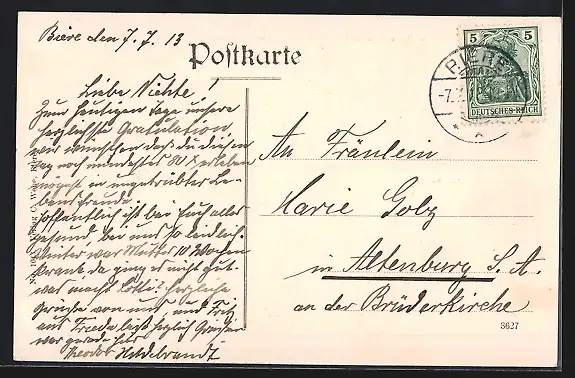 Biere den 7. 7. 13
Postkarte
Liebe Nichte!
Zum heutigen Tage unsere
herzlichste Gratulation
wir wünschen daß du diesen
Tag noch mindestens 80 x erleben
mögest in ungetrübter Le-
bensfreude.
Hoffentlich ist bei Euch alles
gesund, bei uns so leidlich.
Winter war Mutter 10 Wochen
krank da ging es nicht gut.
was macht herzliche
Grüße von uns und Fritz
aus Frieda läßt herzlich Grüßen
war gerade hier
Theodor Hildebrandt
An Fräulein
Marie Golz
in Altenburg S. A.
an der Brüderkirche
5 5
DEUTSCHES REICH
BIERE
-7.
3627